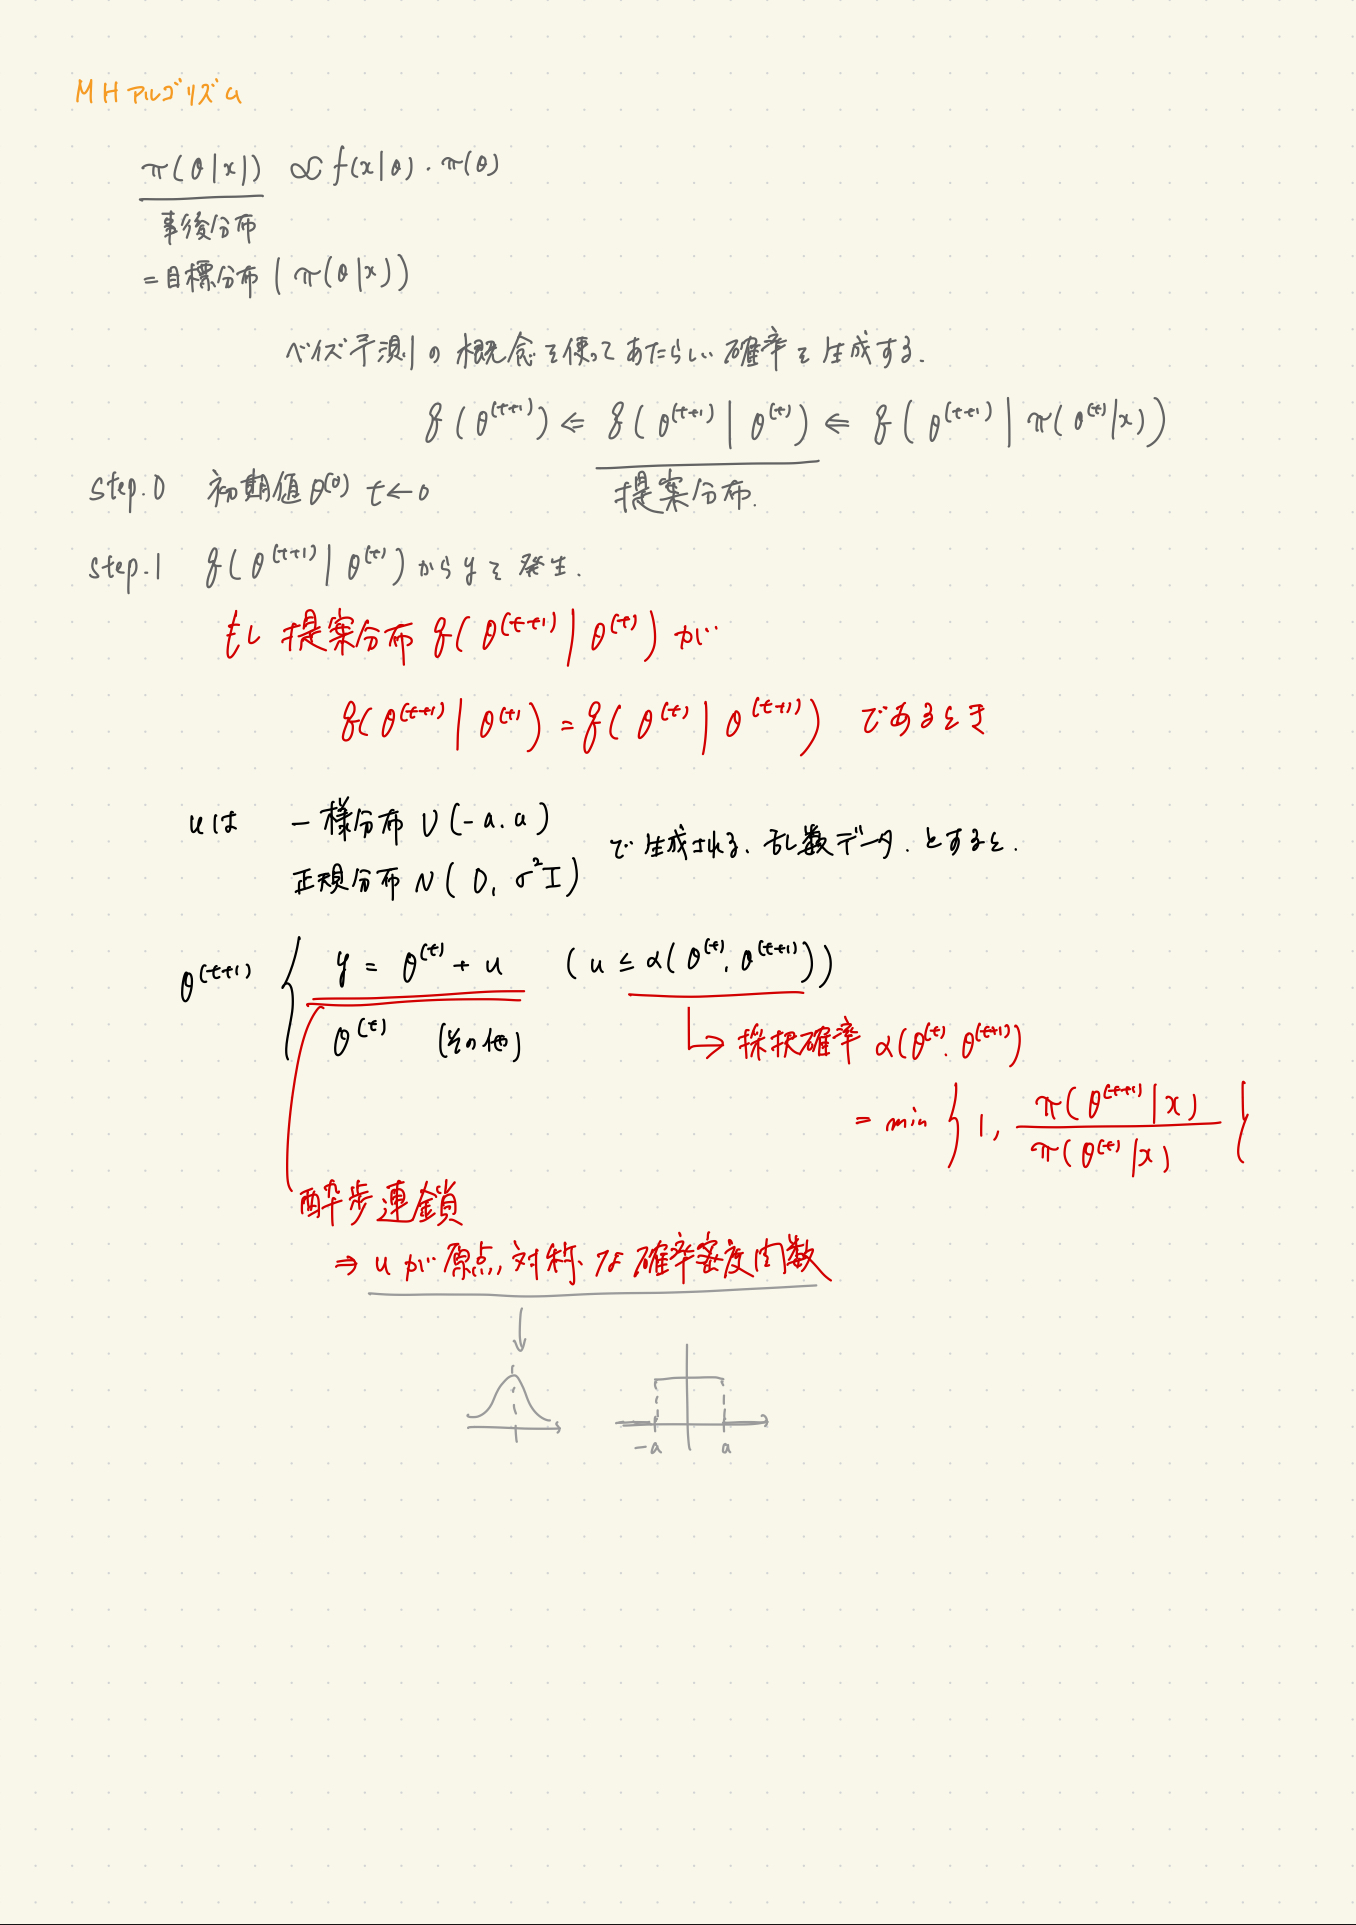 MHアルゴリズム
π(θ|x) ∝ f(x|θ)・π(θ)
事後分布
=目標分布(π(θ|x))
ベイズ予測の概念を使ってあたらしい確率を生成する.
q(θ^(t+1)) ⇐ q(θ^(t+1)|θ^(t)) ⇐ q(θ^(t+1)|π(θ^(t)|x))
提案分布.
step.0 初期値θ^(0) t←0
step.1 q(θ^(t+1)|θ^(t))からyを発生.
もし提案分布 q(θ^(t+1)|θ^(t))が
q(θ^(t+1)|θ^(t)) = q(θ^(t)|θ^(t+1)) であるとき
uは 一様分布 U(-a.a)
正規分布 N(0, σ²I)
で生成される.乱数データ.とすると.
θ^(t+1) { y = θ^(t) + u (u ≤ α(θ^(t), θ^(t+1)))
θ^(t) (その他)
↳ 採択確率 α(θ^(t), θ^(t+1))
= min { 1, π(θ^(t+1)|x) / π(θ^(t)|x) }
酔歩連鎖
⇒ uが原点,対称,な確率密度関数
-a a